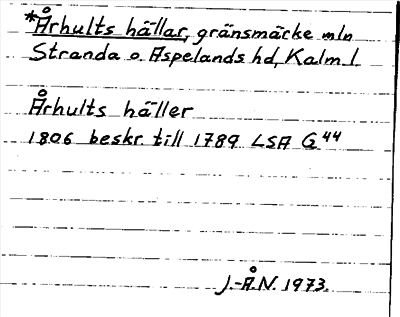 *Århults hällar, gränsmäcke mln
Stranda o. Aspelands hd, Kalm. l.
Århults häller
1806 beskr. till 1789 LSA G 44
J.-Å.N. 1973.